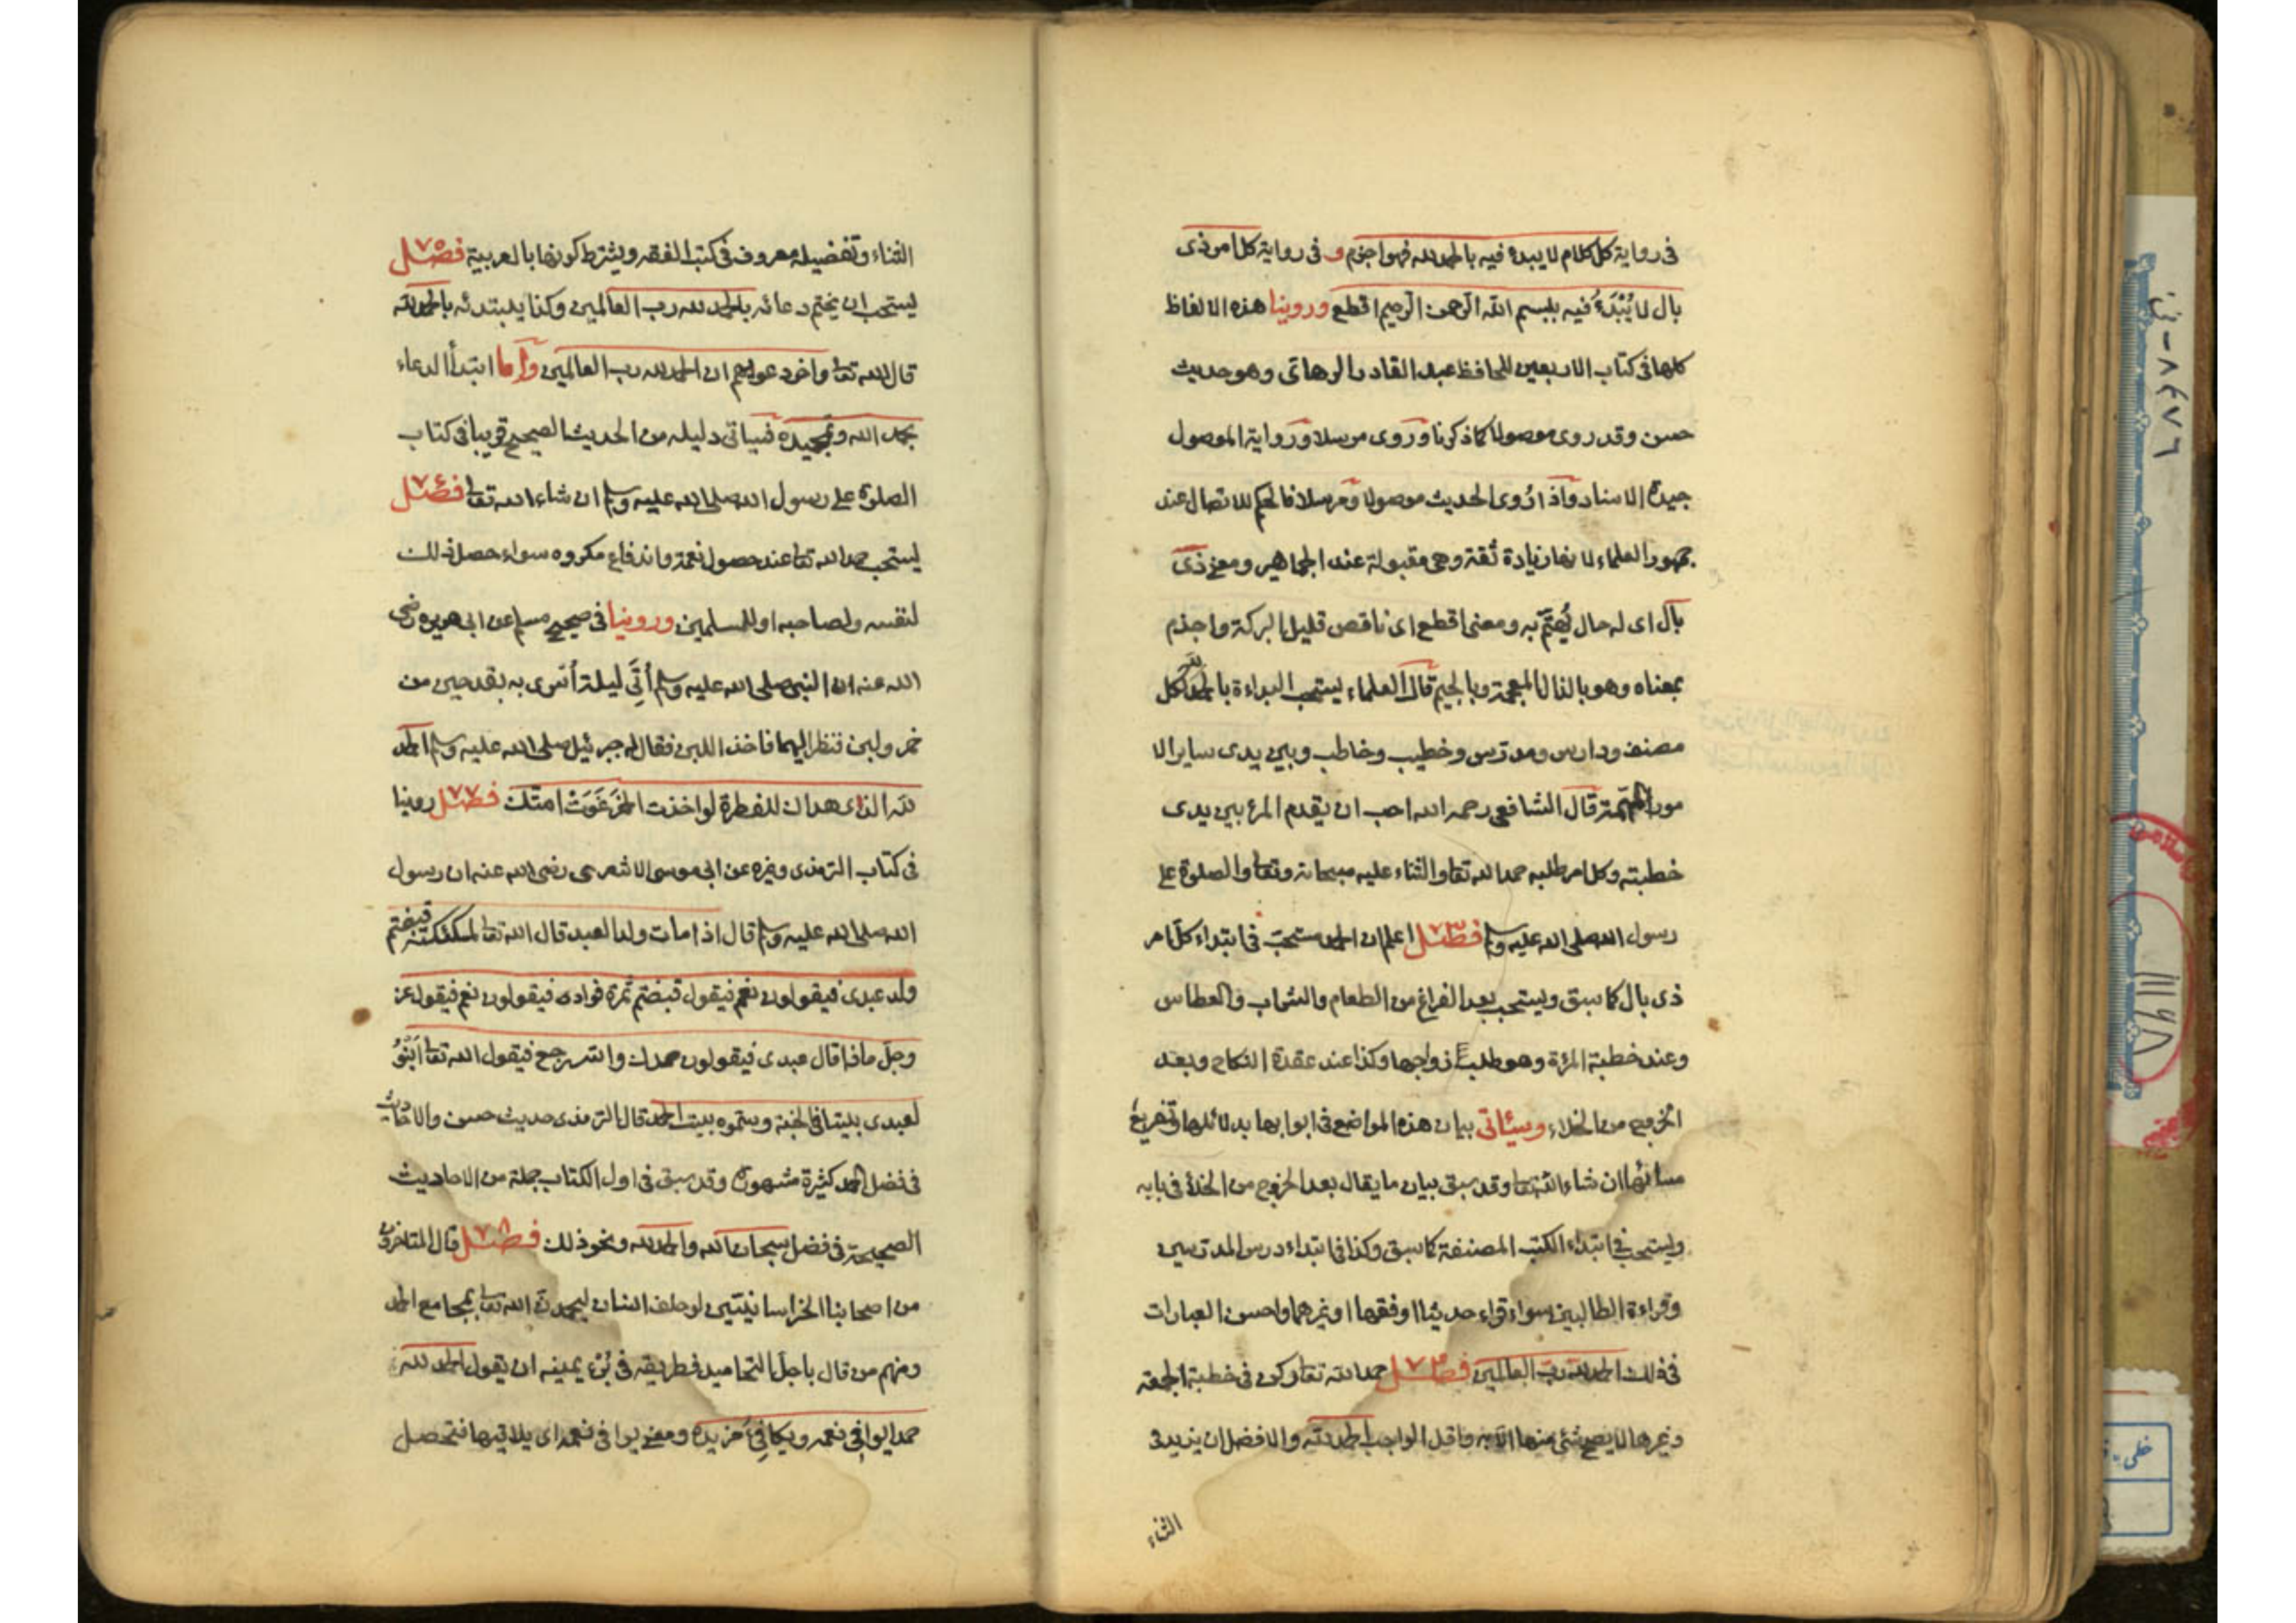 فى رواية كل كلام لا يبدء فيه بالحمد لله فهو اجذم و فى رواية كل امر ذى
بال لا يُبْدَءُ فيه ببسم الله الرحمن الرحيم اقطع وروينا هذه الالفاظ
كلها فى كتاب الاربعين للحافظ عبد القادر الرهاوى وهو حديث
حسن وقد روى موصولا كما ذكرنا وروى مرسلا ورواية الموصول
جيدة الاسناد واذا رُوى الحديث موصولا ومرسلا فالحكم للاتصال عند
جمهور العلماء لانها زيادة ثقة وهى مقبولة عند الجماهير ومعنى ذى
بال اى له حال يُهتَمّ به ومعنى اقطع اى ناقص قليل البركة واجذم
بمعناه وهو بالذال المعجمة وبالجيم قال العلماء يستحب البداءة بالحمد لله لكل
مصنف ودارس ومدرّس وخطيب وخاطب وبين يدى ساير الا
مور المهمّة قال الشافعى رحمه الله احب ان يقدم المرء بين يدى
خطبته وكل امر طلبه حمد الله تعا والثناء عليه سبحانه وتعا والصلوة على
رسول الله صلى الله عليه وسلم فصل ٧٣ اعلم ان الحمد مستحبّ فى ابتداء كل امر
ذى بال كما سبق ويستحب بعد الفراغ من الطعام والشراب والعطاس
وعند خطبة المرءة وهو طلب زواجها وكذا عند عقدة النكاح وبعد
الخروج من الخلاء وسيأتى بيان هذه المواضع فى ابوابها بدلائلها وتفريع
مسائلها ان شاء الله تعا وقد سبق بيان ما يقال بعد الخروج من الخلاء فى بابه
ويستحب فى ابتداء الكتب المصنفة كما سبق وكذا فى ابتداء درس المدرّسين
وقراءة الطالبين سواء قراء حديثا او فقها او غيرهما واحسن العبارات
فى ذلك الحمد لله رب العالمين فصل ٧٤ حمد الله تعا ركن فى خطبة الجمعه
وغيرها لا يصح شئ منها الا به واقل الواجب الحمد لله والافضل ان يزيد فى
الثناء
الثناء وتفصيله معروف فى كتب الفقه ويشترط كونها بالعربية فصل ٧٥
يستحب ان يختم دعائه بالحمد لله رب العالمين وكذا يبتدئه بالحمد لله
قال الله تعا وآخر دعويهم ان الحمد لله رب العالمين واما ابتدأ الدعاء
بحمد الله وتمجيده فسياتى دليله من الحديث الصحيح قريبا فى كتاب
الصلوة على رسول الله صلى الله عليه وسلم ان شاء الله تعا فصل ٧٦
يستحب حمد الله تعا عند حصول نعمة واندفاع مكروه سواء حصل ذلك
لنفسه ولصاحبه او للمسلمين وروينا فى صحيح مسلم عن ابى هريره رضى
الله عنه ان النبى صلى الله عليه وسلم أُتِىَ ليلة أُسرى به بقدحين من
خمر ولبن فنظر اليهما فاخذ اللبن فقال له جبرئيل صلى الله عليه وسلم الحمد
لله الذى هداك للفطرة لو اخذت الخمر غَوَتْ امتك فصل ٧٧ روينا
فى كتاب الترمذى وغيره عن ابى موسى الاشعرى رضى الله عنه ان رسول
الله صلى الله عليه وسلم قال اذا مات ولد العبد قال الله تعا لملئكته قبضتم
ولد عبدى فيقولون نعم فيقول قبضتم ثمرة فواده فيقولون نعم فيقول عز
وجلّ ماذا قال عبدى فيقولون حمدك واسترجع فيقول الله تعا ابنوُ
لعبدى بيتا فى الجنة وسمّوه بيت الحمد قال الترمذى حديث حسن والاحاديث
فى فضل الحمد كثيرة مشهورة وقد سبق فى اول الكتاب جملة من الاحاديث
الصحيحة فى فضل سبحان الله والحمد لله ونحو ذلك فصل ٧٨ قال المتاخرون
من اصحابنا الخراسانيّين لو حلف انسان ليحمدنّ الله تعا بمجامع الحمد
ومنهم من قال باجلّ التحاميد فطريقه فى بُرّ يمينه ان يقول الحمد لله
حمدا يوافى نعمه ويكافئ مزيده ومعنى يوافى نعمه اى يلاقيها فتحصل